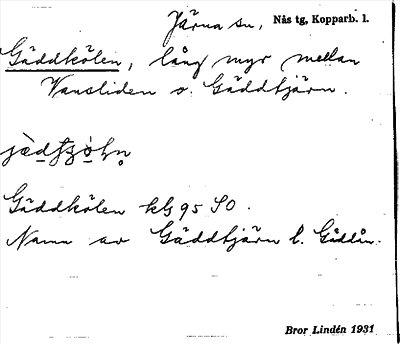 Järna sn, Nås tg, Kopparb. l.
Gäddkölen, lång myr mellan
Vansliden o. Gäddtjärn.
Gäddkölen kbg 95 SO.
Namn av Gäddtjärn l. Gäddån.
Bror Lindén 1931